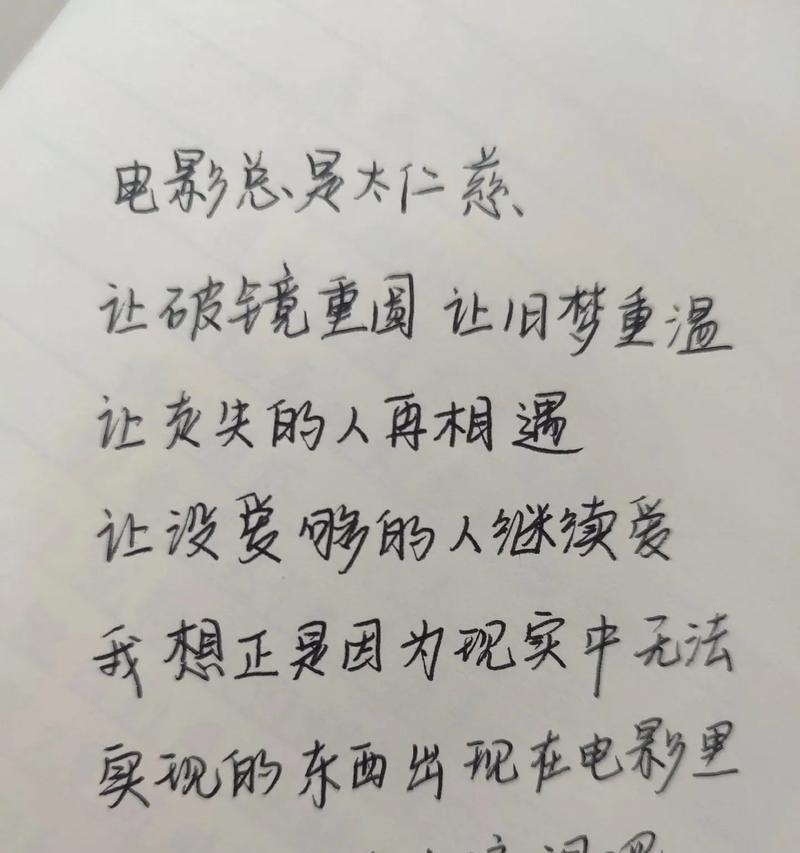 电影总是太仁慈、
让破镜重圆 让旧梦重温
让走失的人再相遇
让没爱够的人继续爱
我想正是因为现实中无法
实现的东西出现在电影里